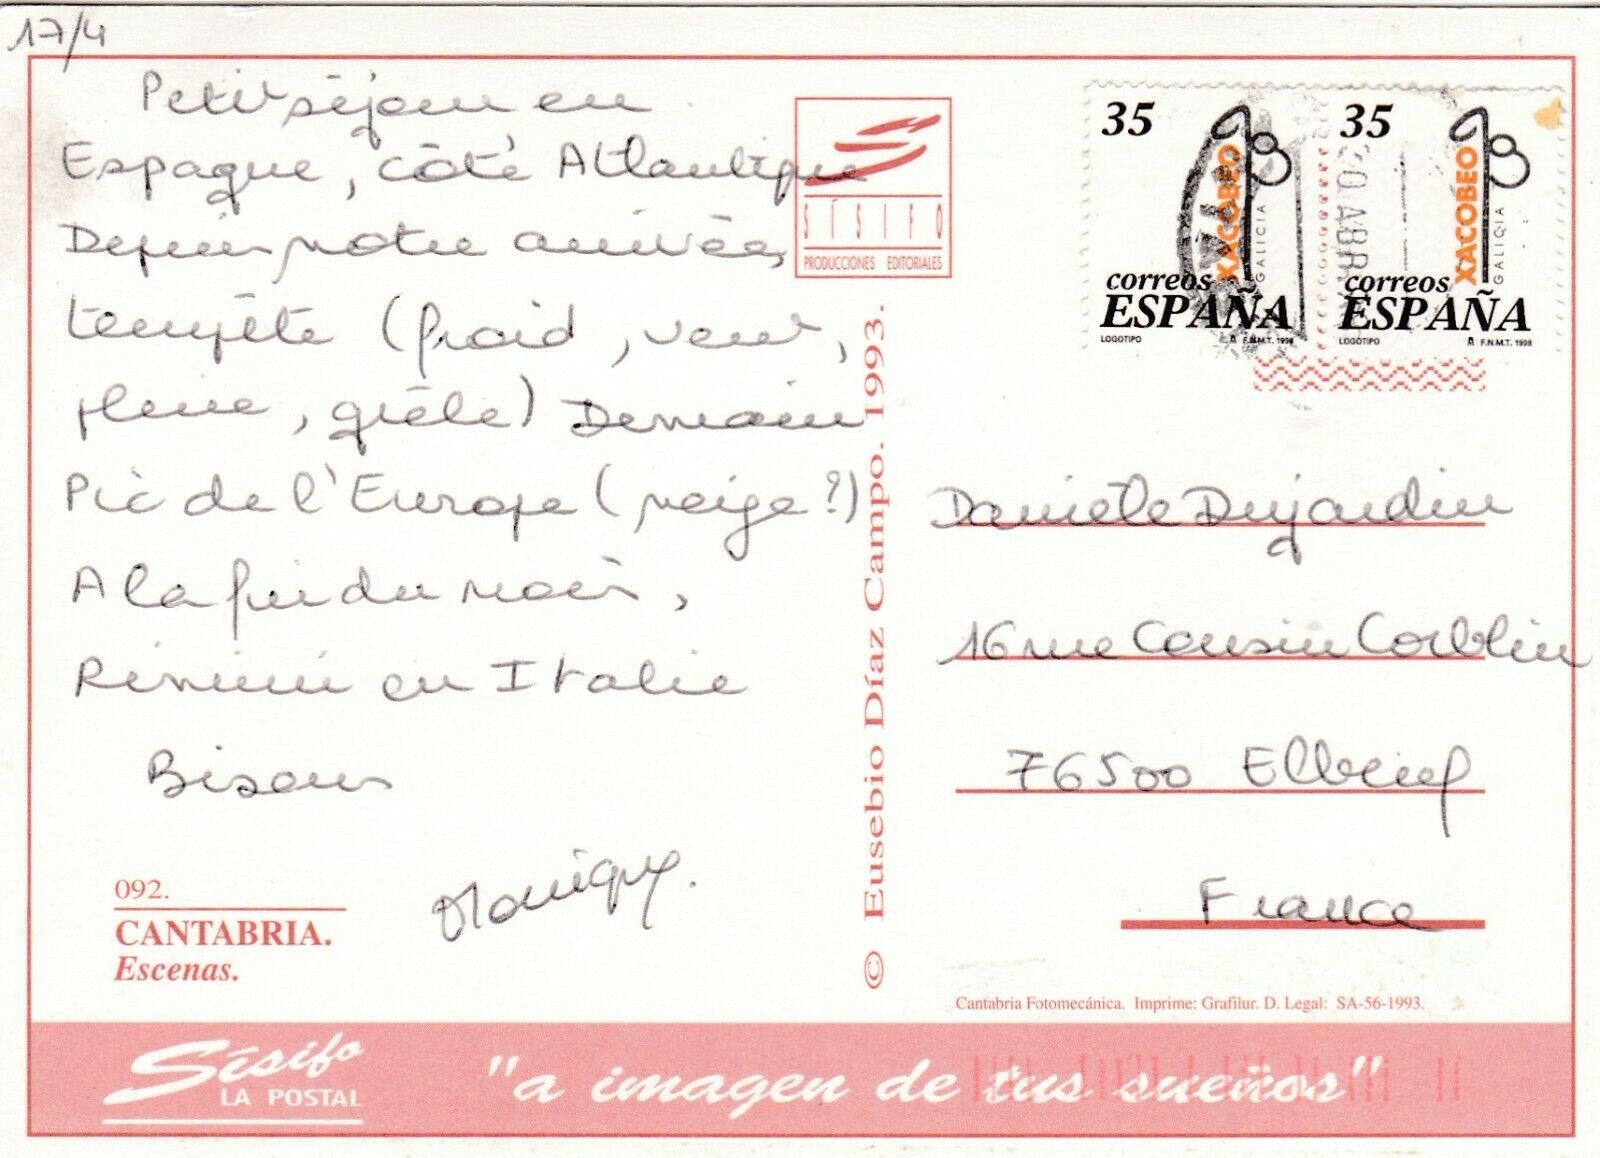 17/4
Petit séjour en
Espagne, côté Atlantique
Depuis notre arrivée,
tempête (froid, vent,
pluie, grêle) Demain
Pic de l'Europe (neige?)
A la fin du mois,
Rimini en Italie
Bisous
092.
CANTABRIA.
Escenas.
SÍSIFO
PRODUCCIONES EDITORIALES
© Eusebio Díaz Campo. 1993.
35
XACOBEO
GALICIA
correos
ESPAÑA
LOGOTIPO
F.N.M.T. 1998
35
XACOBEO
GALICIA
correos
ESPAÑA
LOGOTIPO
F.N.M.T. 1998
Danièle Dujardin
16 rue Cousin Corblin
76500 Elbeuf
France
Cantabria Fotomecánica. Imprime: Grafilur. D. Legal: SA-56-1993.
Sísifo
LA POSTAL
"a imagen de tus sueños"